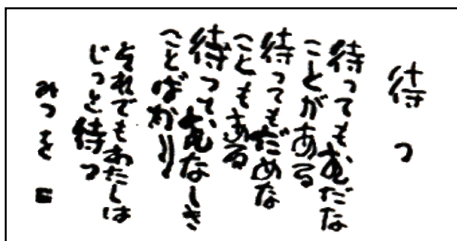 待つ
待ってもむだな
ことがある
待ってもだめな
こともある
待って、むなしき
ことばかり
それでもわたしは
じっと待つ
みつを